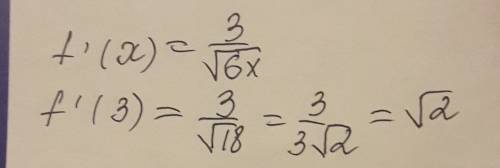 f'(x) = 3/√6x
f'(3) = 3/√18 = 3/3√2 = √2